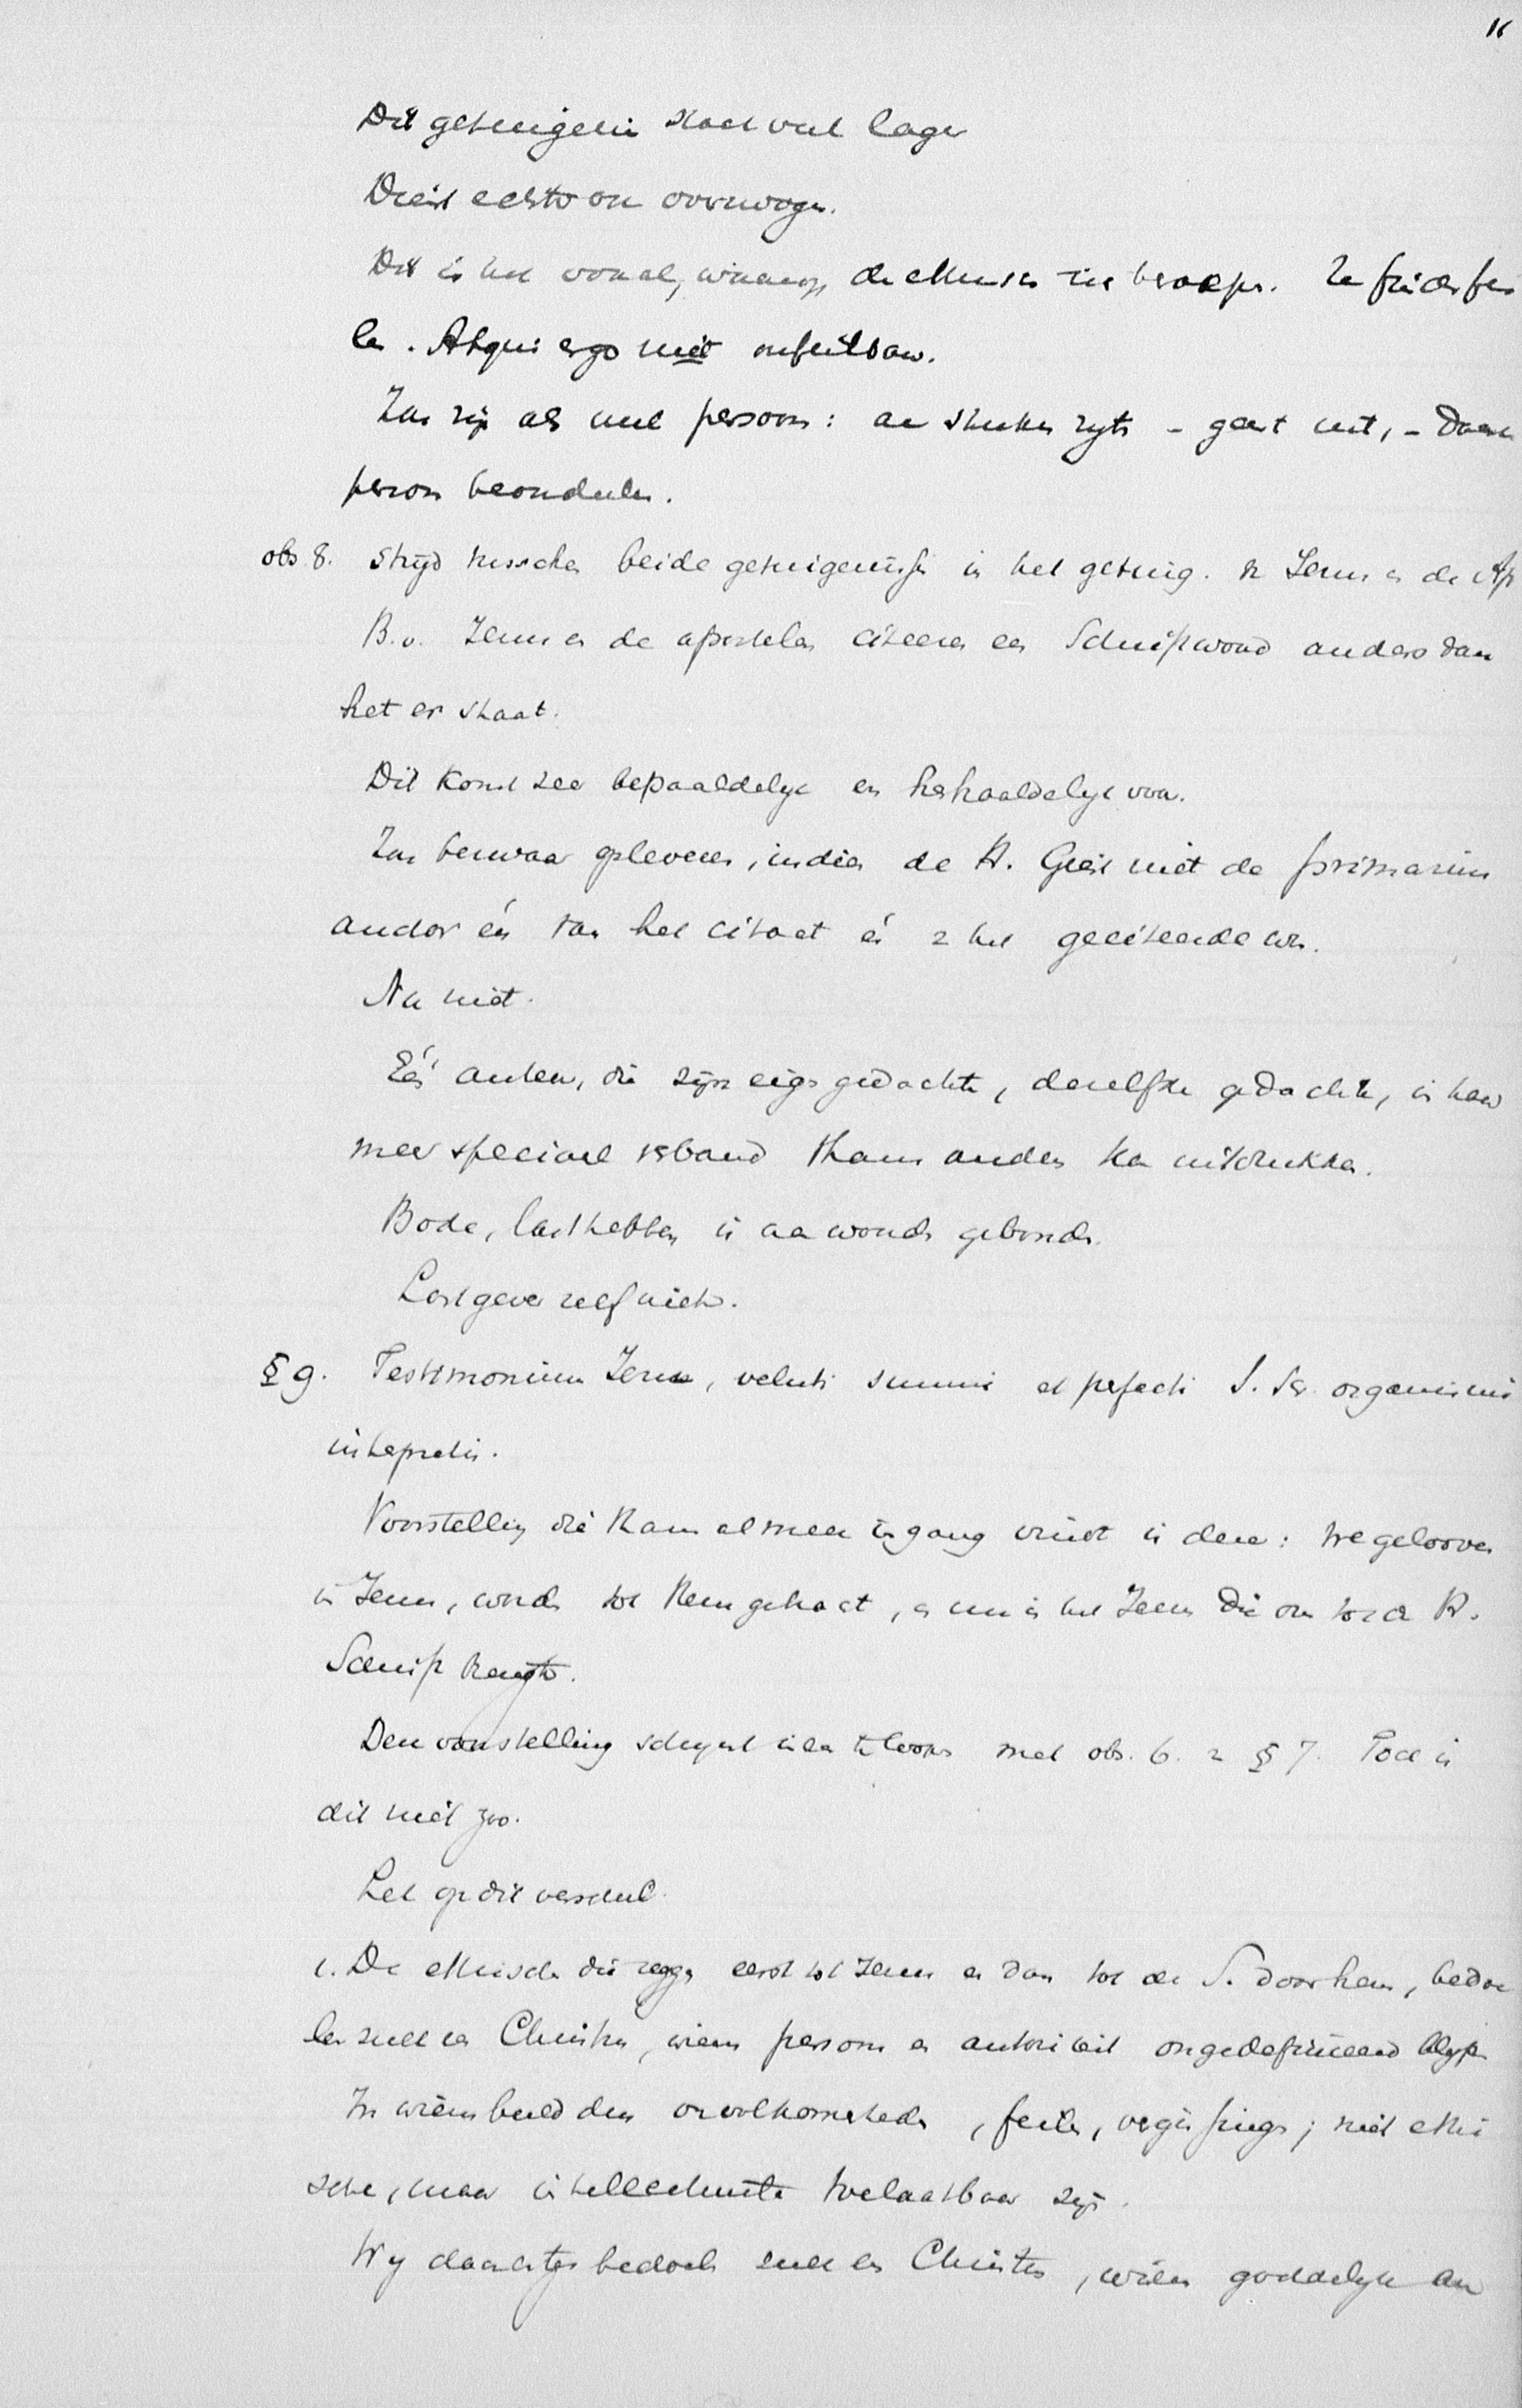 11
Dit getuigenis staat veel lager
Dient echter ook overwogen.
Dit is het vooral, waarop de ethischen zich beroepen. Ze
. Atqui ergo niet onfeilbaar.
als met persoon: stukken - gaat niet, - Daar
persoon beoordeelen.
obs 8. Strijd tusschen beide getuigenissen in het getuig. v Jezus en de Ap
B.v. Jezus en de apostelen citeeren een Schriftwoord anders dan
het er staat.
Dit komt zeer bepaaldelijk en herhaaldelijk voor.
Zou bezwaar opleveren, indien de H. Geest niet de primarius
auctor én van het citaat én v het geciteerde was.
Nu niet.
Eén auteur, die zijn eigen gedachte, dezelfde gedachte, in haar
meer speciaal verband thans anders kan uitdrukken.
Bode, lasthebber is aan woorden gebonden.
Lastgever zelf niet.
§ 9. Testimonium Jezus, veluti summi et perfecti S. Scr. organismi
interpretis.
Voorstelling die thans al meer ingang vindt is deze: We gelooven
in Jezus, worden tot Hem gebracht, en nu is het Jezus die ons tot de H.
Schrift brengt.
Deze voorstelling schijnt samen te loopen met obs. 6. v § 7. Toch is
dit niet zoo.
Let op dit verschil.
1. De ethische die zeggen eerst tot Jezus en dan tot de S. door hem, bedoe
len zulk een Christus, wiens persoon en autoriteit ongedefinieerd blijft
In wiens beeld dus onvolkomenheden, feilen, vergissingen; niet ethi
sche, maar intellectueele toelaatbaar zijn.
Wij daarentegen bedoelen zulk een Christus, wiens goddelijke au